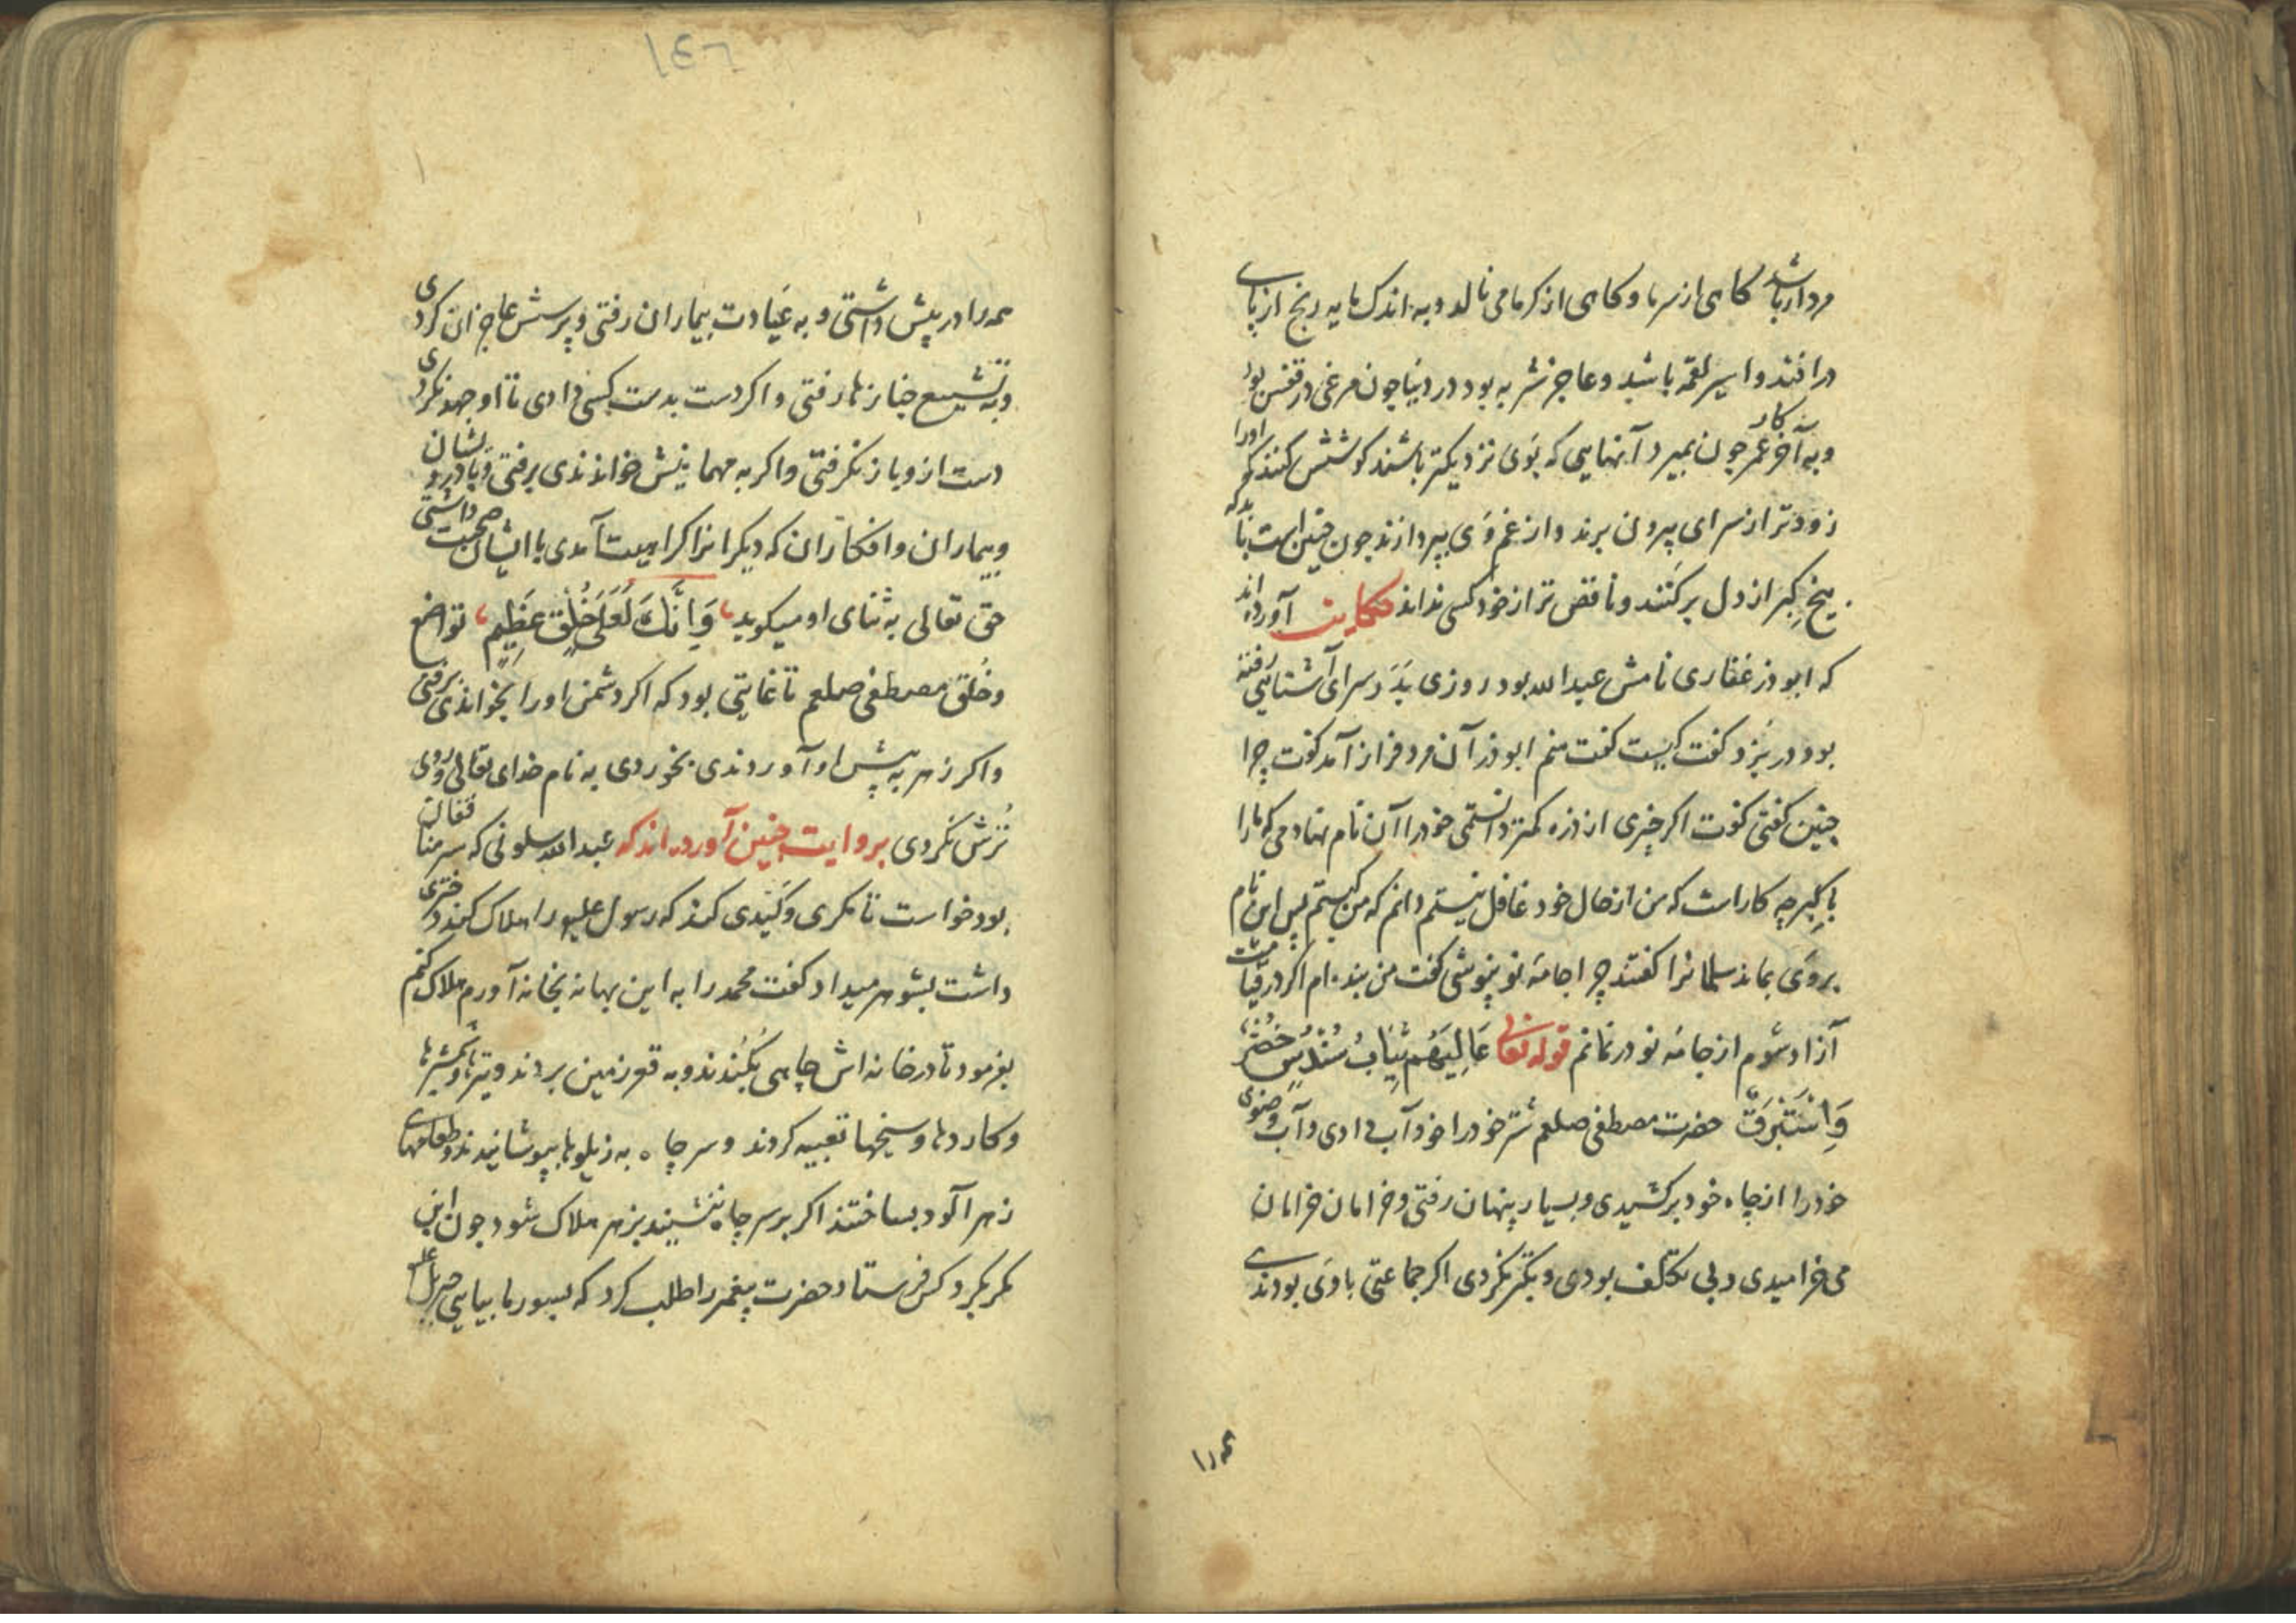 مردار باشد کاهی از سرما و کاهی از کرما می نالد و به اندک مایه رنج از پای
درافتد و اسیر لقمه باشد و عاجز بشر به بود در دنیا چون مرغی در قفس بود
و به آخر عمر چون بمیرد آنهایی که بوی نزدیکتر باشند کوشش کنند که او را
زودتر از سرای بیرون برند و از غم وی بپردازند چون چنین است باید که
بیخ کبر از دل برکنند و ناقص تر از خود کسی نداند حکایت آورده اند
که ابوذر غفاری نامش عبدالله بود روزی بدر سرای آشنایی رفته
بود در بزد کفت کیست کفت منم ابوذر آن مرد فراز آمد کفت چرا
چنین کفتی کفت اکر چیزی از ذره کمتر دانستمی خود را آن نام نهادمی که ما را
با کبر چه کار است که من از حال خود غافل نیستم دانم که من کیستم پس این نام
بروی بماند سلمانرا کفتند چرا جامه نو نپوشی کفت من بنده ام اکر در قیامت
آزاد شوم از جامه نو در نمانم قوله تعالی عَالِیَهُم ثِیَابُ سُنْدُسٍ خُضْرٌ
وَاِسْتَبْرَقٌ حضرت مصطفی صلعم شتر خود را خود آب دادی و آب وضوی
خود را از چاه خود برکشیدی و بسیار پنهان رفتی و خرامان خرامان
می خرامیدی و بی تکلف بودی و تکبر نکردی اکر جماعتی با وی بودندی
همه را
همه را در پیش داشتی و به عیادت بیماران رفتی و پرسش عاجزان کردی
و به تشییع جنازها رفتی و اکر دست بدست کسی دادی تا او جهد نکردی
دست از و باز نکرفتی و اکر به مهمانیش خواندندی برفتی و با درویشان
و بیماران و افکاران که دیکرانرا کراهیت آمدی با ایشان صحبت داشتی
حق تعالی به ثنای او میکوید وَاِنَّکَ لَعَلَی خُلُقٍ عَظِیمٍ تواضع
و خُلق مصطفی صلعم تا غایتی بود که اکر دشمن او را بخواندی برفتی
و اکر زهر به پیش او آوردندی بخوردی به نام خدای تعالی و روی
تُرش نکردی بروایت چنین آورده اند که عبدالله سلونی که سر منافقان
بود خواست تا مکری و کیدی کند که رسول علیه را هلاک کند دختری
داشت بشوهر میداد کفت محمد را به این بهانه بخانه آورم هلاک کنم
بفرمود تا در خانه اش چاهی بکندند و به قعر زمین بردند و تیرها و شمشیرها
و کاردها و سیخها تعبیه کردند و سر چاه به زیلوها بپوشانیدند و طعامهای
زهر آلود بساختند اکر بر سر چاه ننشیند بزهر هلاک شود چون این
مکر بکرد کس فرستاد حضرت پیغمبر را طلب کرد که بسور ما بیایی جبریل علیه